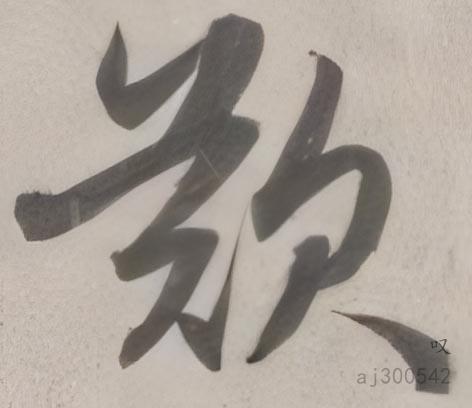 歎
叹
aj300542